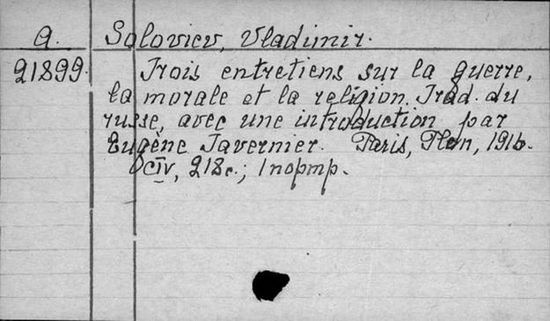 A. Soloviev, Vladimir.
21899. Trois entretiens sur la guerre,
la morale et la religion. Trad. du
russe, avec une introduction par
Eugène Tavernier. Paris, Plon, 1916.
CIV, 218c.; 1 портр.